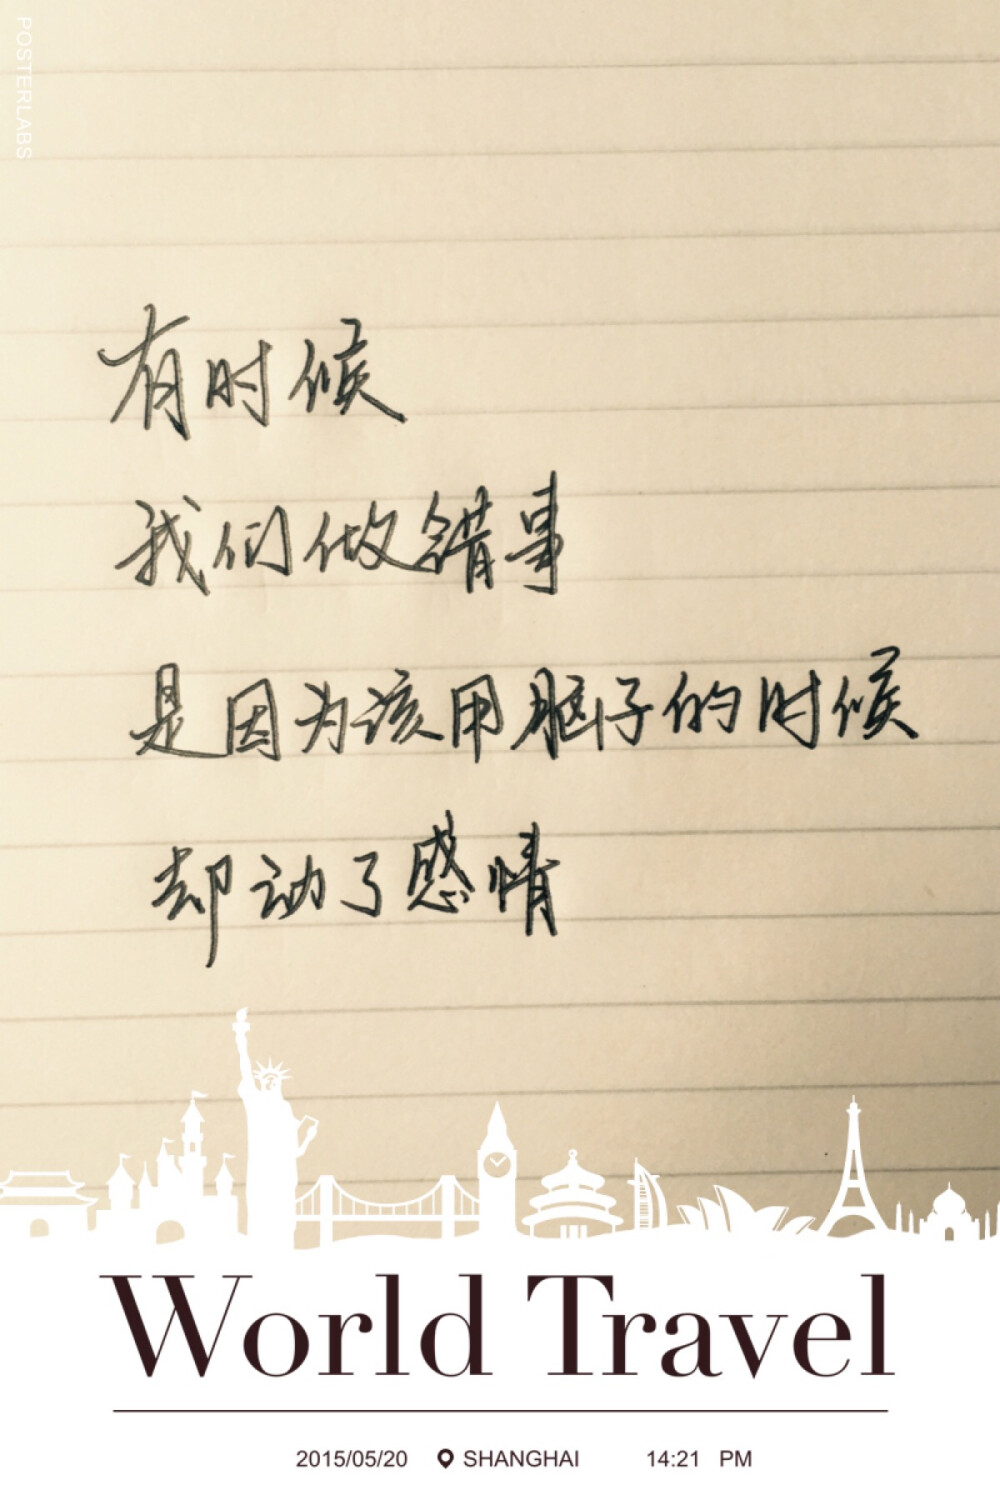 POSTERLABS
有时候
我们做错事
是因为该用脑子的时候
却动了感情
World Travel
2015/05/20 SHANGHAI 14:21 PM